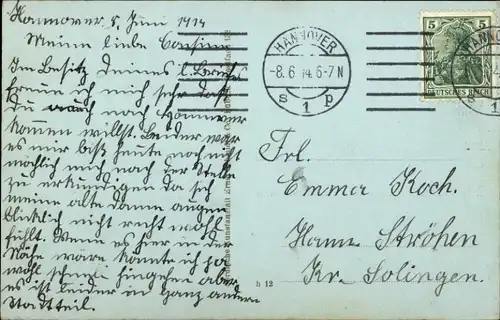 Hannover, 8, Juni 1914
Meine liebe Cousine
Im Besitz Deines l. Briefes
freue ich mich sehr daß
Du auch nach Hannover
kommen willst. Leider war
es mir bis heute noch nicht
möglich mich nach der Stelle
zu erkundigen da sich
meine alte Dame augen
blicklich nicht recht wohl
fühlt. Wenn es hier in der
Nähe wäre könnte ich ja
wohl schnell hingehen aber
es ist leider in ganz andern
Stadtteil.
HANNOVER
-8.6 14. 6-7 N
S 1 p
5 5
DEUTSCHES REICH
HANNOVER
Frl.
Emma Koch.
Hann Ströhen
Kr. Solingen.
h 12